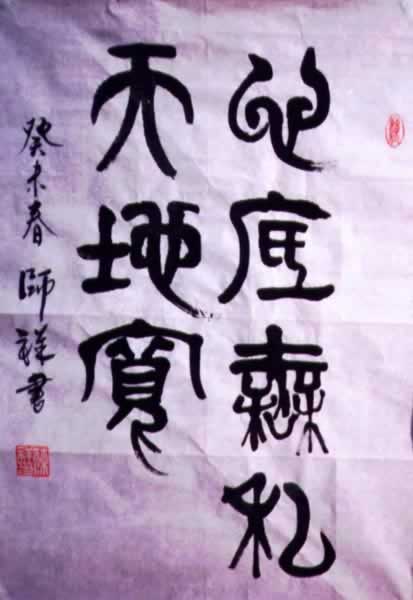 心底無私
天地寬
癸未春師祥書